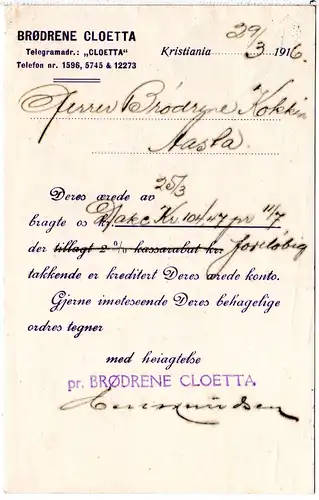 BRØDRENE CLOETTA
Telegramadr.: „CLOETTA"
Telefon nr. 1596, 5745 & 12273
Kristiania 29/3 1916.
Herrer Brødrene
Aasta
Deres ærede av 25/3
bragte os Kr 104/47 pr 11/7
der tillagt 2 % kassarabat kr. foreløbig
takkende er kreditert Deres ærede konto.
Gjerne imeteseende Deres behagelige
ordres tegner
med høiagtelse
pr. BRØDRENE CLOETTA.